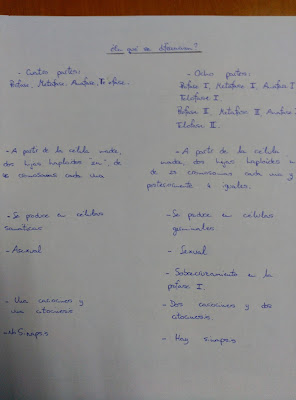 ¿En qué se diferencian?
- Cuatro partes:
Profase, Metafase, Anafase, Telofase.
- A partir de la célula madre,
dos hijas haploides "2n", de
46 cromosomas cada una
- Se produce en células
somáticas
- Asexual
- Una cariocinesis y
una citocinesis
- No Sinapsis
- Ocho partes:
Profase I, Metafase I, Anafase I
Telofase I
Profase II, Metafase II, Anafase
Telofase II.
- A partir de la célula
madre, dos hijas haploides
de 23 cromosomas cada una y
posteriormente 4 iguales.
- Se produce en células
germinales
- Sexual
- Sobrecruzamiento en la
profase I.
- Dos cariocinesis y dos
citocinesis.
- Hay sinapsis